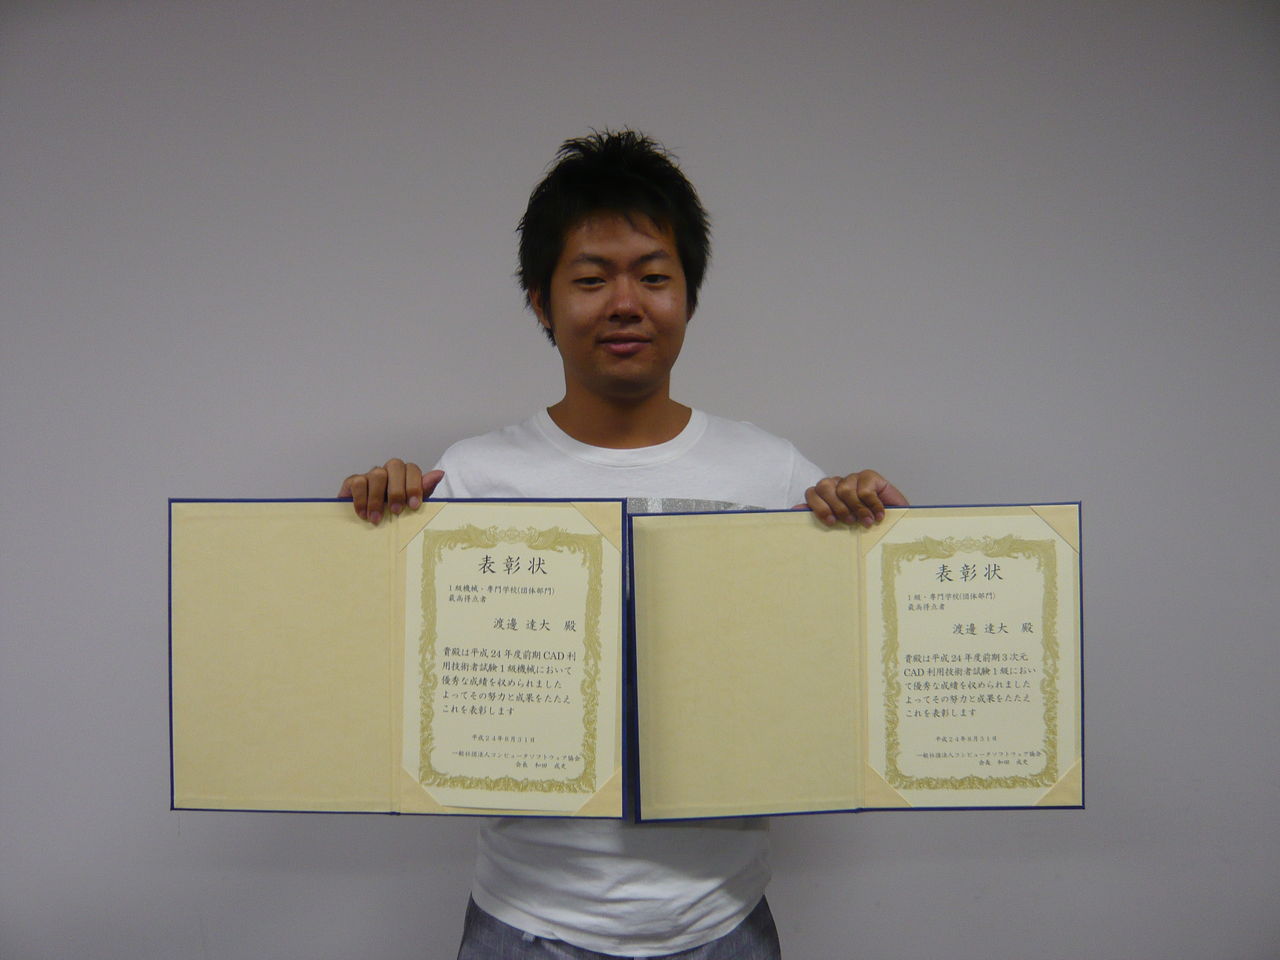 表彰状
1級機械・専門学校(団体部門)
最高得点者
渡邊 達大 殿
貴殿は平成24年度前期CAD利
用技術者試験1級機械において
優秀な成績を収められました
よってその努力と成果をたたえ
これを表彰します
平成24年8月31日
一般社団法人コンピュータソフトウェア協会
会長 和田 成史
表彰状
1級・専門学校(団体部門)
最高得点者
渡邊 達大 殿
貴殿は平成24年度前期3次元
CAD利用技術者試験1級におい
て優秀な成績を収められました
よってその努力と成果をたたえ
これを表彰します
平成24年8月31日
一般社団法人コンピュータソフトウェア協会
会長 和田 成史